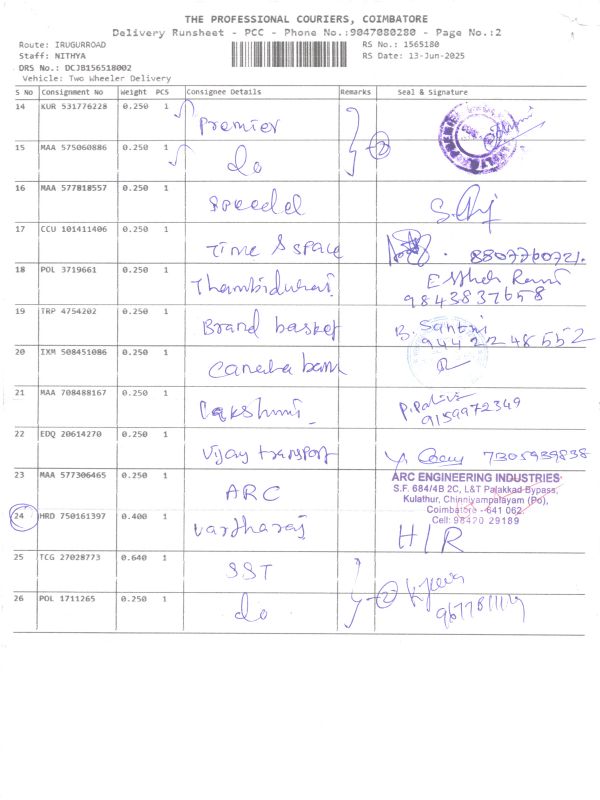 THE PROFESSIONAL COURIERS, COIMBATORE
Delivery Runsheet - PCC - Phone No.:9047080280 - Page No.:2
Route: IRUGURROAD RS No.: 1565180
Staff: NITHYA RS Date: 13-Jun-2025
DRS No.: DCJB156518002
Vehicle: Two Wheeler Delivery
S No Consignment No Weight PCS Consignee Details Remarks Seal & Signature
14 KUR 531776228 0.250 1 Premier
15 MAA 575060886 0.250 1 do 2
16 MAA 577818557 0.250 1 Speedel
17 CCU 101411406 0.250 1 Time & space 8807760721.
18 POL 3719661 0.250 1 Thambidurai Esther Rani
9843837658
19 TRP 4754202 0.250 1 Brand basket B. Santhi
9442248552
20 IXM 508451086 0.250 1 Canara bank
21 MAA 708488167 0.250 1 Lakshmi
9159972349
22 EDQ 20614270 0.250 1 Vijay transport 7305939838
23 MAA 577306465 0.250 1 ARC ARC ENGINEERING INDUSTRIES
S.F. 684/4B 2C, L&T Palakkad Bypass,
Kulathur, Chinniyampalayam (Po),
Coimbatore - 641 062.
Cell: 98420 29189
24 HRD 750161397 0.400 1 Vardharaj H/R
25 TCG 27028773 0.640 1 SST
26 POL 1711265 0.250 1 do 2